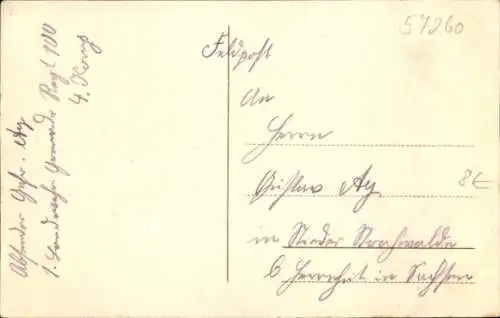 Absender Gefr. Ay
1. Landwehr Grenadier Regt 100
4. Komp
Feldpost
57260
An
Herrn
Gustav Ay
8€
in Nieder Strahwalde
b Herrnhut in Sachsen